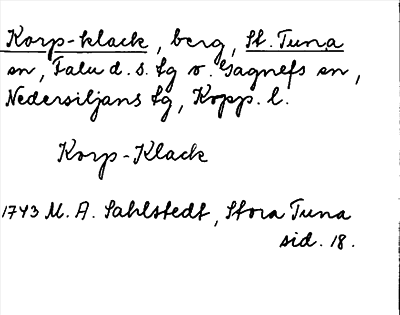 Korp-klack, berg, St. Tuna
sn, Falu d. s. tg o. Gagnefs sn,
Nedersiljans tg, Kopp. l.
Korp-Klack
1743 M. A. Sahlstedt, Stora Tuna
sid. 18.